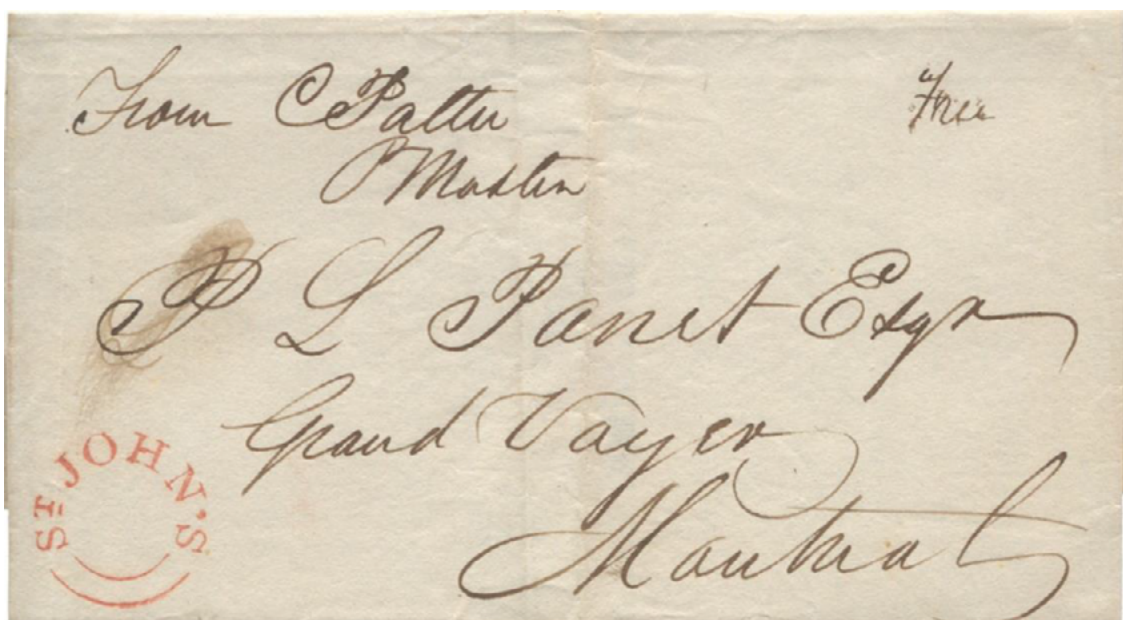 From C Pattee
P Master
Free
P L Panet Esqr
Grand Voyer
Montreal
ST JOHN'S